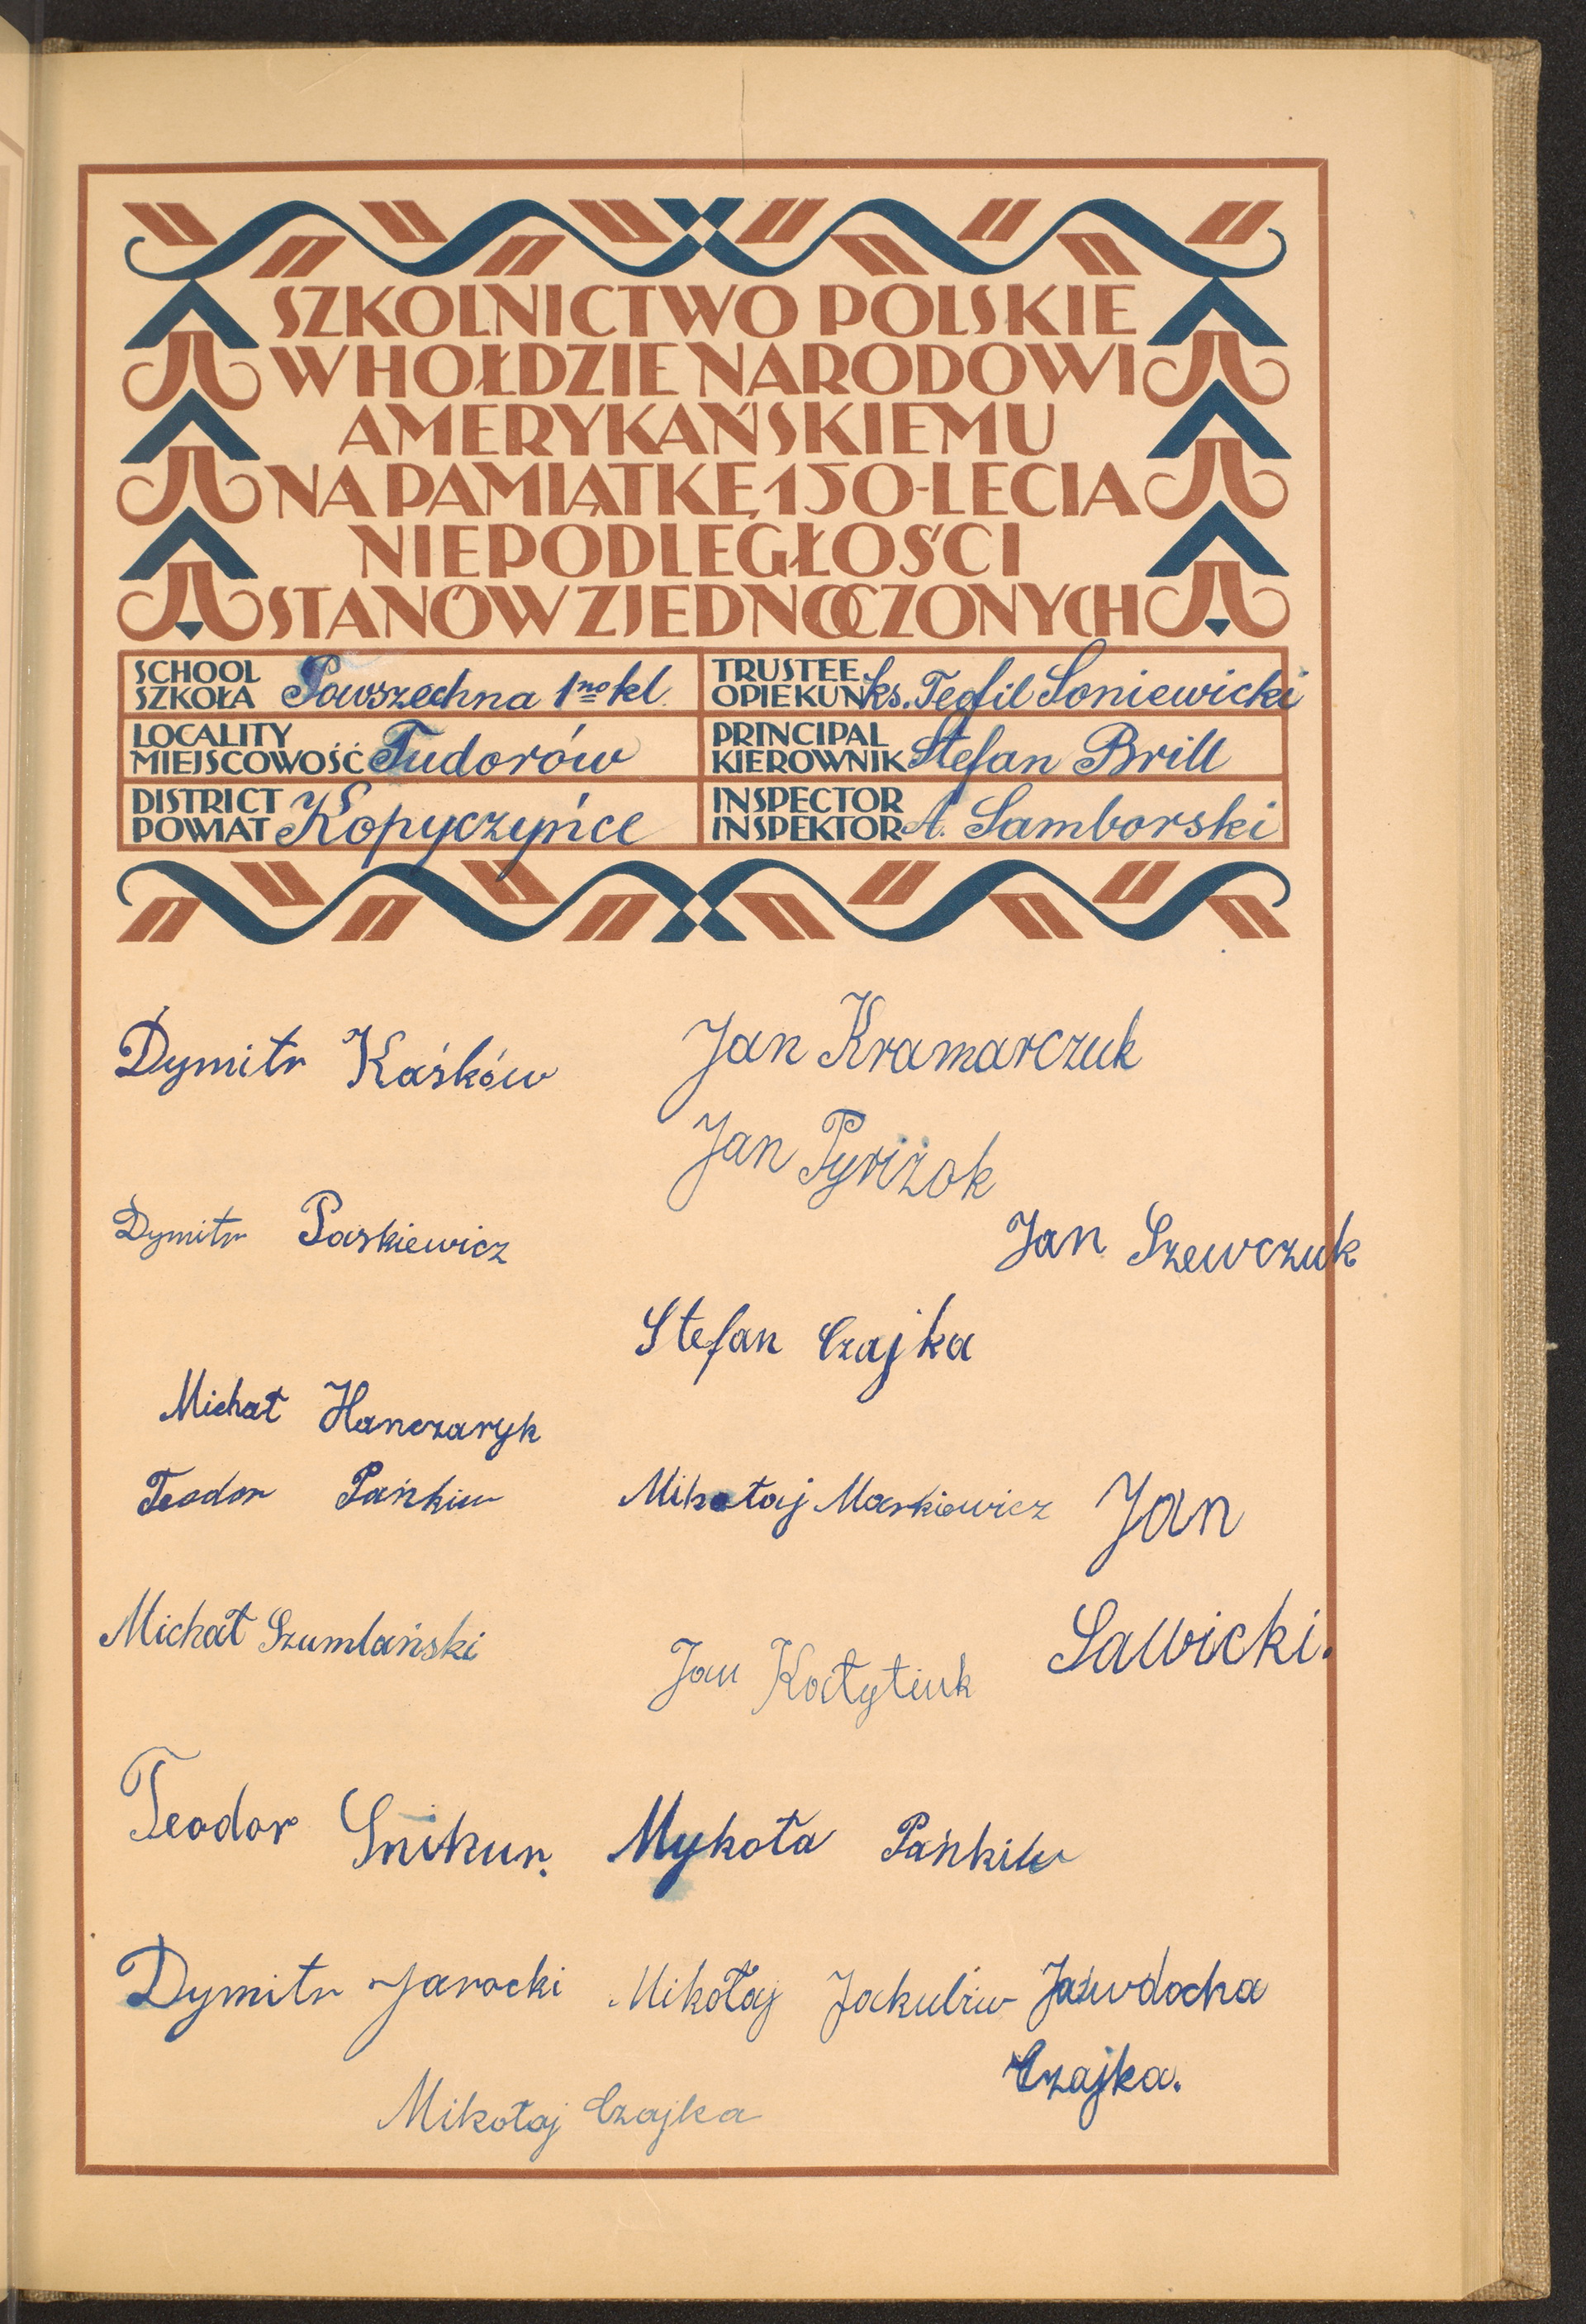 SZKOLNICTWO POLSKIE
W HOŁDZIE NARODOWI
AMERYKAŃSKIEMU
NA PAMIĄTKĘ 150-LECIA
NIEPODLEGŁOŚCI
STANÓW ZJEDNOCZONYCH
SCHOOL
SZKOŁA Powszechna 1no kl.
TRUSTEE
OPIEKUN ks. Teofil Soniewicki
LOCALITY
MIEJSCOWOŚĆ Tudorów
PRINCIPAL
KIEROWNIK Stefan Brill
DISTRICT
POWIAT Kopyczyńce
INSPECTOR
INSPEKTOR A. Samborski
Dymitr Kaśków
Jan Kramarczuk
Jan Pyriżok
Dymitr Paskiewicz
Jan Szewczuk
Stefan Czajka
Michał Hanczaryk
Teodor Pańkiw
Mikołaj Maskiewicz
Jan
Sawicki.
Michał Szumlański
Jan Kołtytiuk
Teodor Snikur.
Mykoła Pańkiw
Dymitr Jarocki
Mikołaj Jakubiw
Jaźwdocha
Czajka.
Mikołaj Czajka